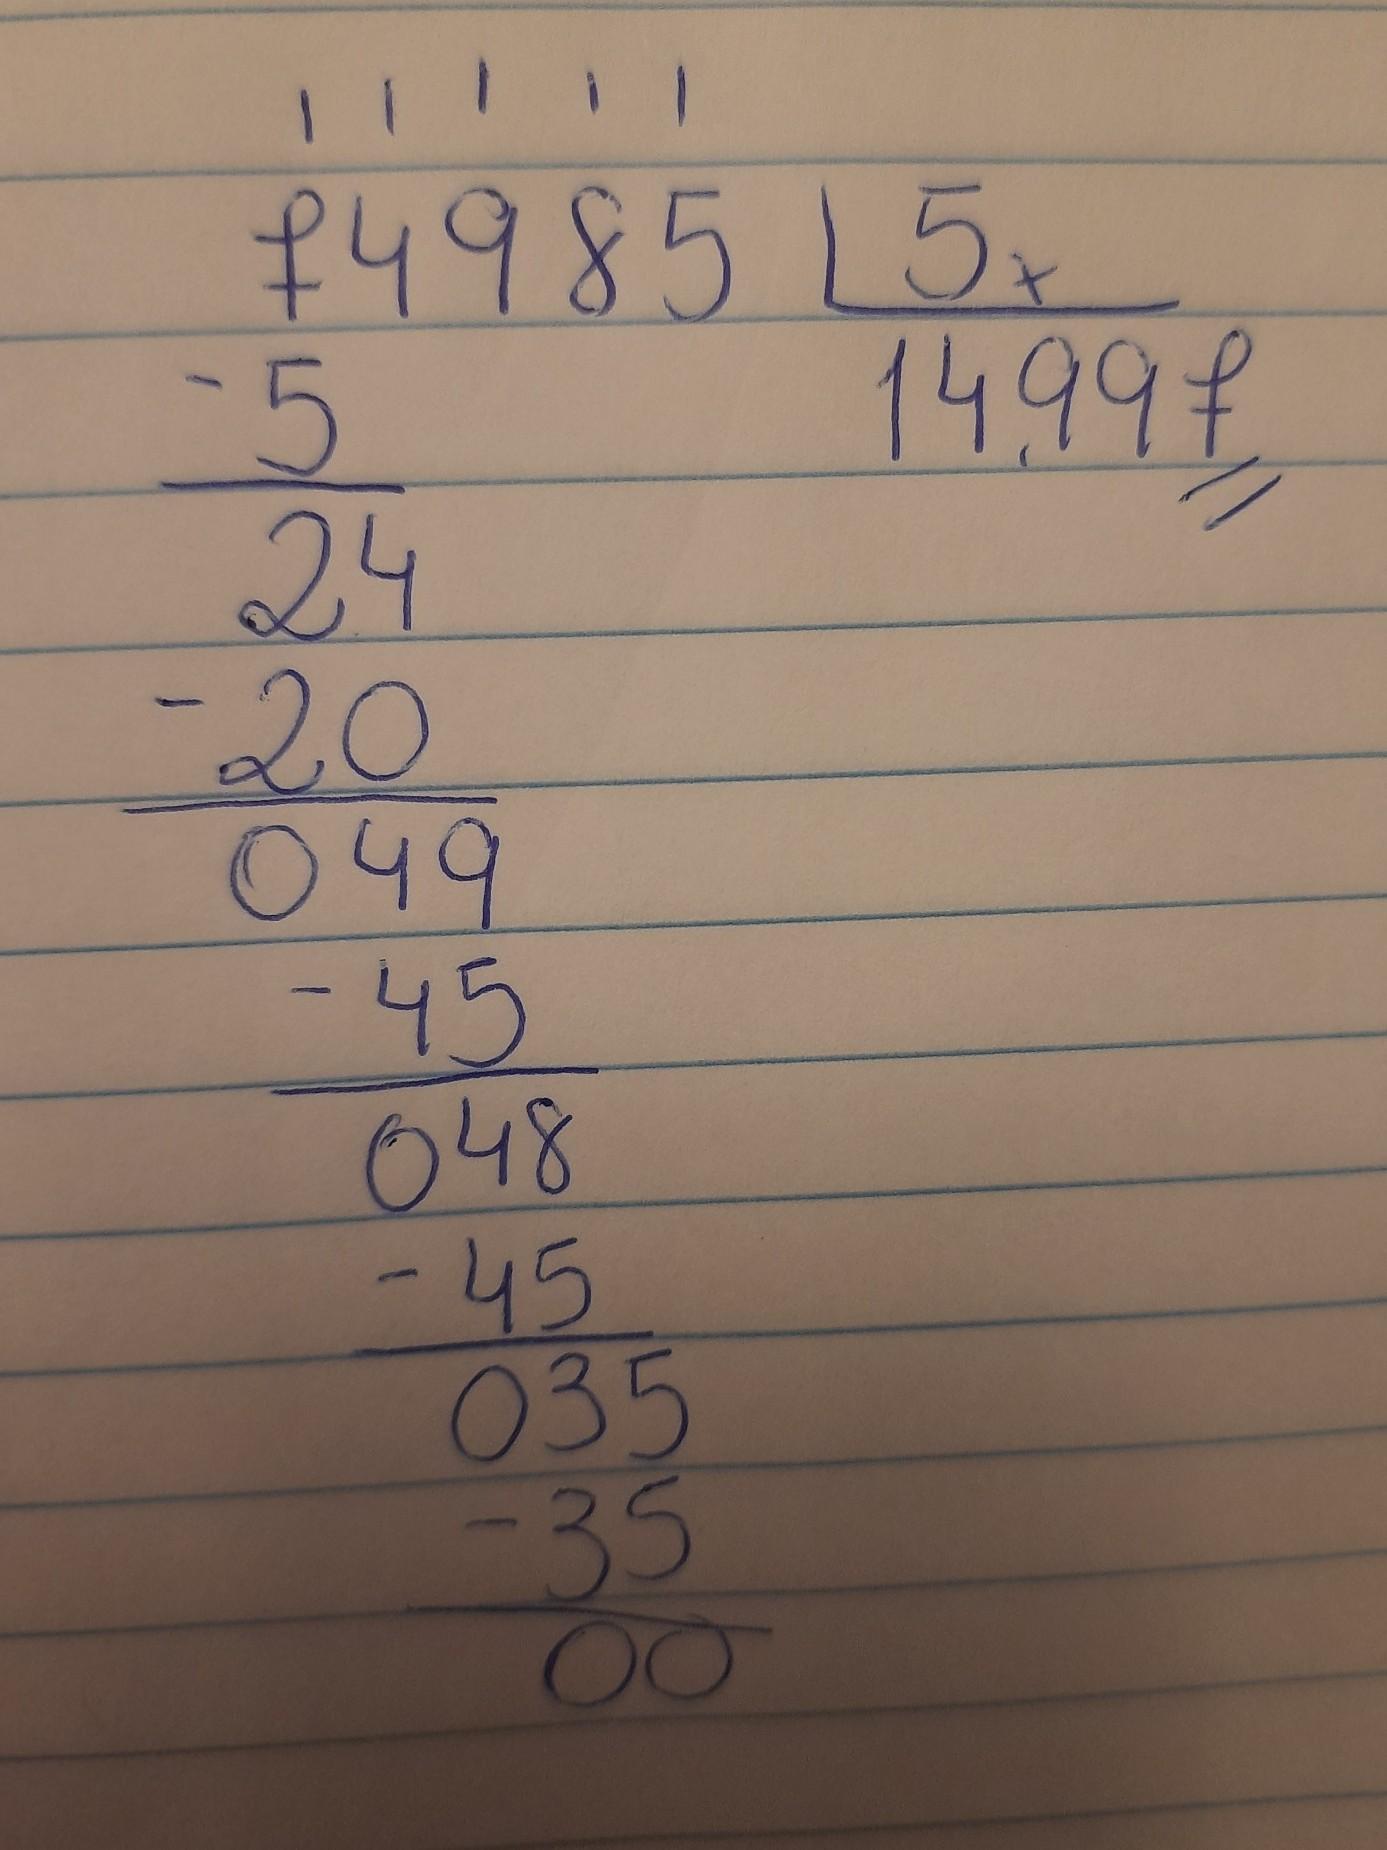 74985 5x
-5 14.997
24
-20
049
-45
048
-45
035
-35
00